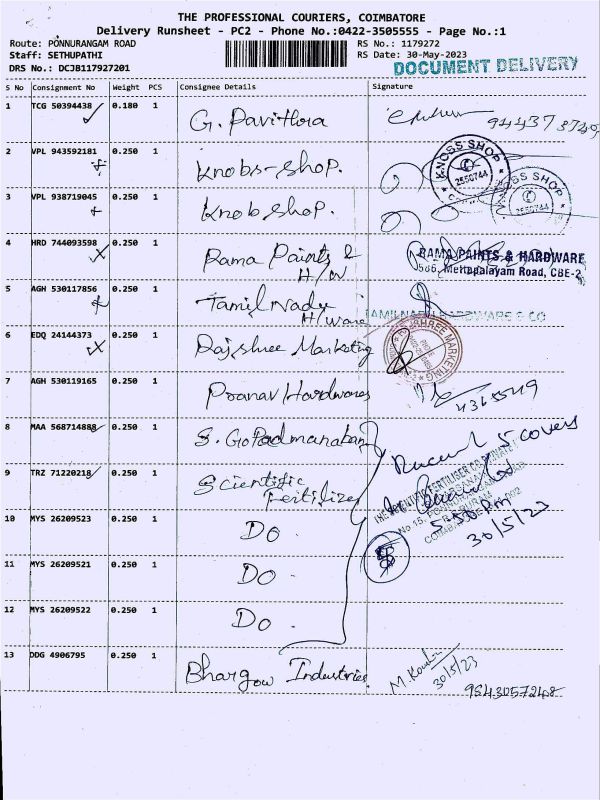 THE PROFESSIONAL COURIERS, COIMBATORE
Delivery Runsheet - PC2 - Phone No.:0422-3505555 - Page No.:1
Route: PONNURANGAM ROAD RS No.: 1179272
Staff: SETHUPATHI RS Date: 30-May-2023
DRS No.: DCJB117927201 DOCUMENT DELIVERY
S No Consignment No Weight PCS Consignee Details Signature
1 TCG 50394438 0.180 1 G. Pavithra
2 VPL 943592181 0.250 1 Knobs-shop. KNOBS SHOP 2550744
3 VPL 938719045 0.250 1 Knob shop. KNOBS SHOP 2550744
4 HRD 744093598 0.250 1 Rama Paints & RAMA PAINTS & HARDWARE
H/W 586, Mettupalayam Road, CBE-2
5 AGH 530117856 0.250 1 Tamil Nadu TAMILNADU HARDWARE & CO
H/ware
6 EDQ 24144373 0.250 1 Rajshree Marketing RAJSHREE MARKETING
7 AGH 530119165 0.250 1 Pranav Hardwares 4365549
8 MAA 568714888 0.250 1 S. GoPadmanaban 5 covers
9 TRZ 71220218 0.250 1 Scientific
Fertilizer
5.50 Pm
30/5/23
10 MYS 26209523 0.250 1 Do
11 MYS 26209521 0.250 1 Do
12 MYS 26209522 0.250 1 Do
13 DDG 4906795 0.250 1 Bhargow Industries 30/5/23
9543057248